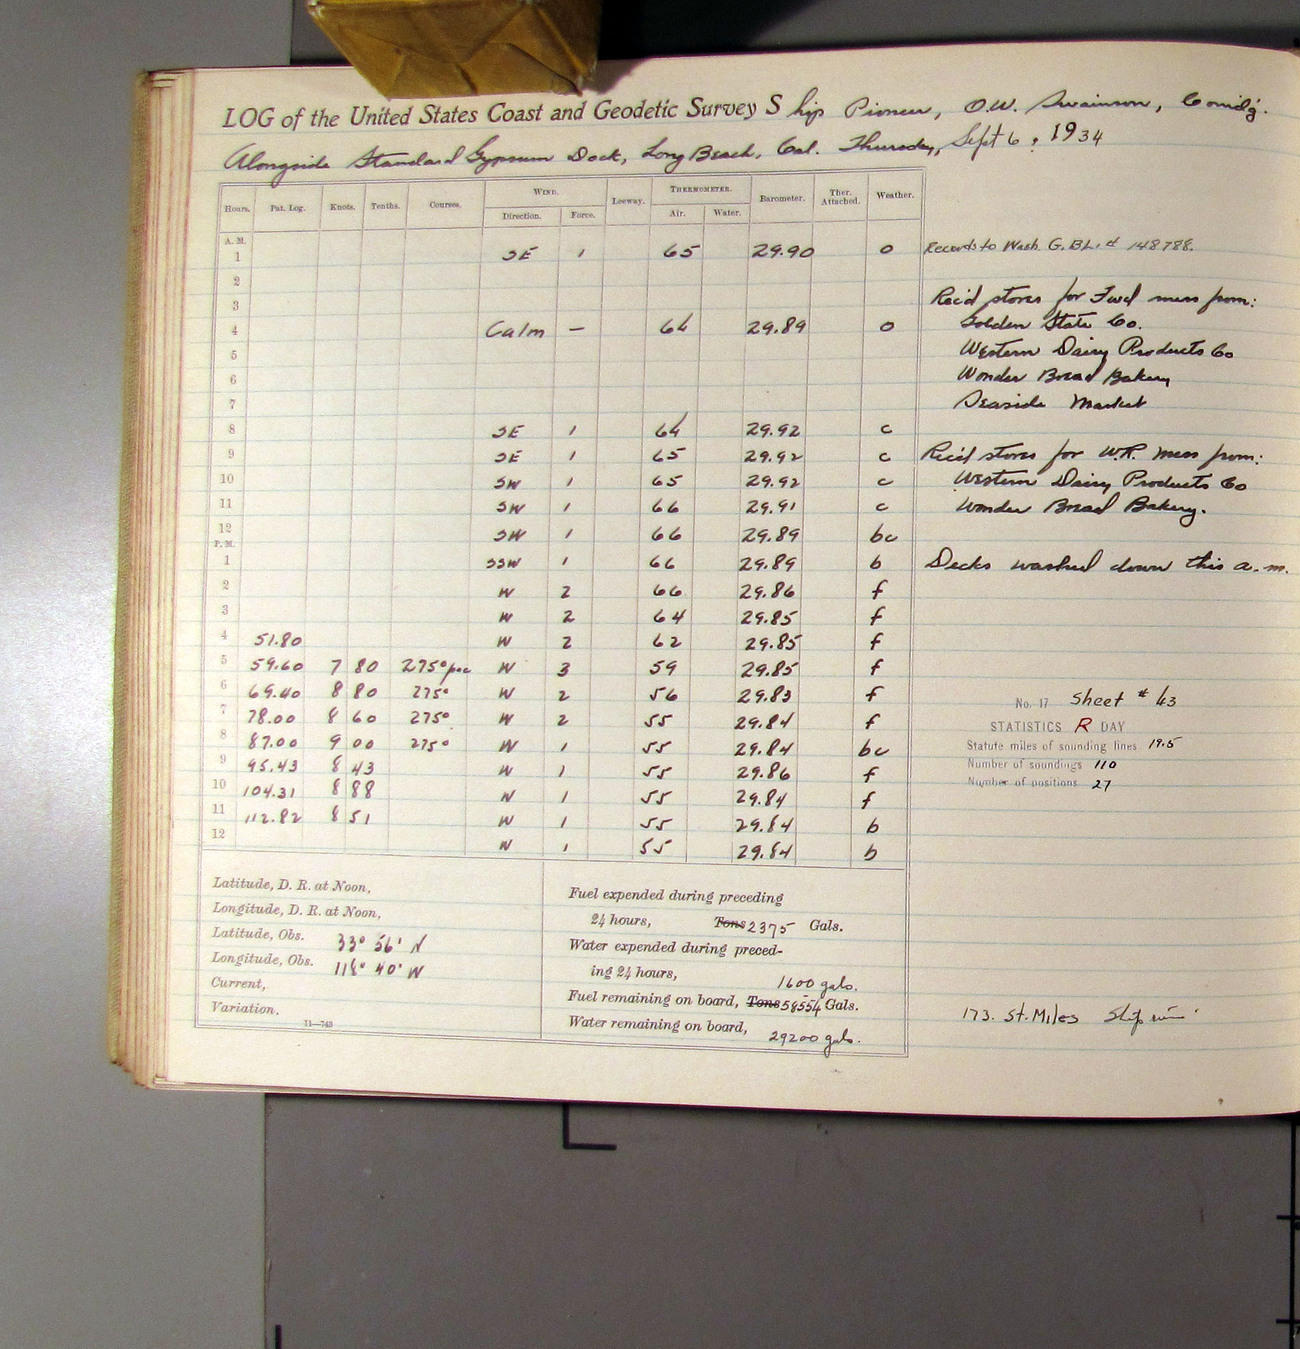 LOG of the United States Coast and Geodetic Survey Ship Pioneer, O.W. Swainson, Comdg.
Alongside Standard Gypsum Dock, Long Beach, Cal. Thursday, Sept 6, 1934
Hours. Pat. Log. Knots. Tenths. Courses. WIND. Direction. Force. Leeway. THERMOMETER. Air. Water. Barometer. Ther. Attached. Weather.
A. M.
1 SE 1 65 29.90 o Records to Wash. G.B.L. # 148788.
2
3 Rec'd stores for Fwd mess from:
4 Calm — 64 29.89 o Golden State Co.
5 Western Dairy Products Co
6 Wonder Bread Bakery
7 Seaside Market
8 SE 1 64 29.92 c
9 SE 1 65 29.92 c Rec'd stores for W.R. mess from:
10 SW 1 65 29.92 c Western Dairy Products Co
11 SW 1 66 29.91 c Wonder Bread Bakery.
12 SW 1 66 29.89 bc
P. M.
1 SSW 1 66 29.89 b Decks washed down this a.m.
2 W 2 66 29.86 f
3 W 2 64 29.85 f
4 51.80 W 2 62 29.85 f
5 59.60 7 80 275° psc W 3 59 29.85 f
6 69.40 8 80 275° W 2 56 29.83 f
7 78.00 8 60 275° W 2 55 29.84 f
8 87.00 9 00 275° W 1 55 29.84 bc
9 95.43 8 43 W 1 55 29.86 f
10 104.31 8 88 W 1 55 29.84 f
11 112.82 8 51 W 1 55 29.84 b
12 W 1 55 29.84 b
No. 17 Sheet # 43
STATISTICS R DAY
Statute miles of sounding lines 19.5
Number of soundings 110
Number of positions 27
Latitude, D. R. at Noon,
Longitude, D. R. at Noon,
Latitude, Obs. 33° 56' N
Longitude, Obs. 118° 40' W
Current,
Variation.
11—743
Fuel expended during preceding
24 hours, Tons 2375 Gals.
Water expended during preced-
ing 24 hours, 1600 gals.
Fuel remaining on board, Tons 58554 Gals.
Water remaining on board, 29200 gals.
173. St. Miles Ship run